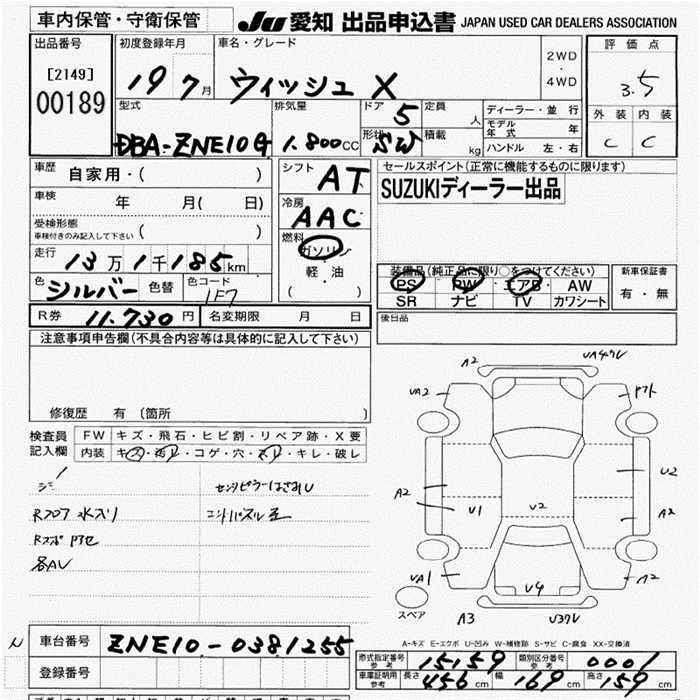 車内保管・守衛保管 JU 愛知 出品申込書 JAPAN USED CAR DEALERS ASSOCIATION
出品番号 初度登録年月 車名・グレード 2WD・4WD 評価点
[2149] 19 7月 ウィッシュ X 3.5
00189 型式 排気量 ドア 5 定員 人 ディーラー・並行 外装 内装
モデル年式 年
DBA-ZNE10G 1.800cc 形状 SW 積載 kg ハンドル 左・右 C C
車歴 自家用・( ) シフト AT セールスポイント(正常に機能するものに限ります)
車検 年 月( 日) 冷房 AAC SUZUKIディーラー出品
受検形態 ( )
車検付きのみ記入して下さい
燃料 ガソリン
走行 13万1千185km 軽・油 装備品(純正品に限り○をつけてください) 新車保証書
色 シルバー 色替 色コード 1F7 ( ) PS PW エアB AW 有・無
SR ナビ TV カワシート
R券 11.730円 名変期限 月 日 後日品
注意事項申告欄(不具合内容等は具体的に記入して下さい)
A2 UA4クレ
UA2
修復歴 有 (箇所 )
検査員 FW キズ・飛石・ヒビ割・リペア跡・X要
記入欄 内装 キズ・汚れ・コゲ・穴・スレ・キレ・破レ
U2
A2 U1 U2 A2
各AU
UA1 U4 A2
スペア A3 U3クレ
車台番号 ZNE10-0381255
A-キズ E-エクボ U-凹み W-補修跡 S-サビ C-腐食 XX-交換済
登録番号 形式指定番号 参考 15159 類別区分番号 参考 0001
車庫証明用 参考 長さ 456cm 幅 169cm 高さ 159cm